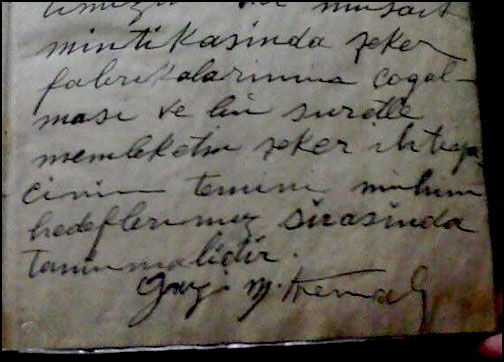 imizin her müsait
mıntıkasında şeker
fabrikalarımına çoğal-
ması ve bu suretle
memleketin şeker ihtiya-
cının temini mühim
hedeflerimiz sırasında
tanınmalıdır.
Gazi M. Kemal